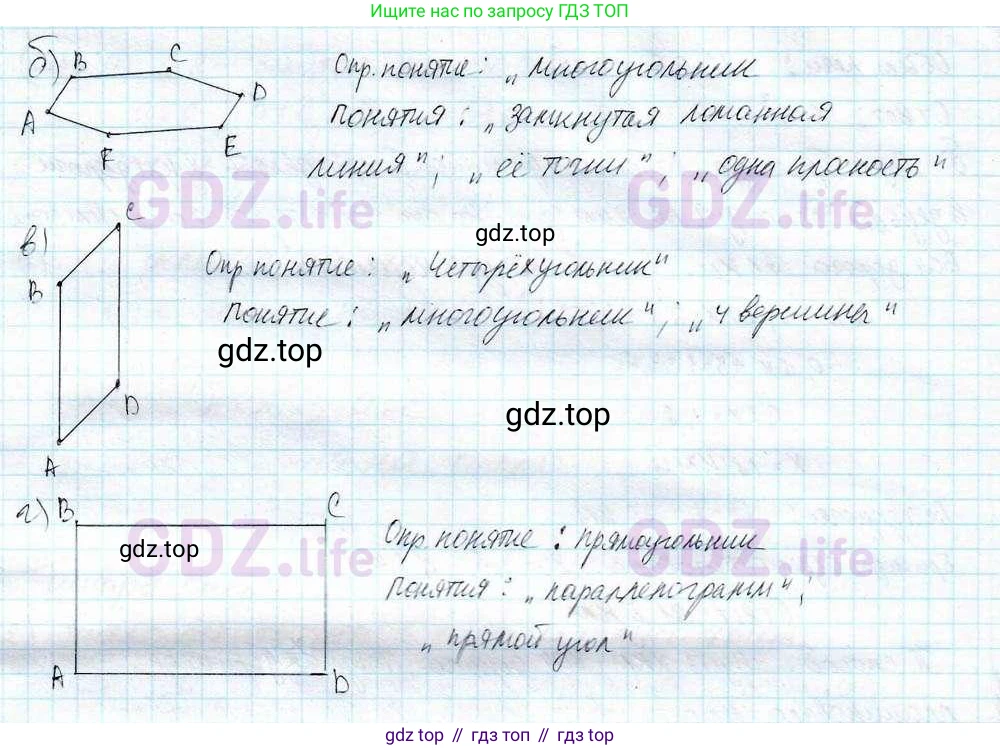 Ищите нас по запросу ГДЗ ТОП
б) B C Опр. понятие: „ многоугольник
A D понятия: „ замкнутая ломанная
F E линия"; „ её точки "; „ одна плоскость "
GDZ.life GDZ.life
C
в) gdz.top
B Опр понятие: „ Четырёхугольник"
понятие: „ многоугольник"; „ 4 вершины "
gdz.top
D gdz.top
A
г) B C
GDZ.life GDZ.life
gdz.top Опр. понятие : прямоугольник
понятия: „ параллелограмм";
„ прямой угол"
A D
gdz.top // гдз топ // gdz top